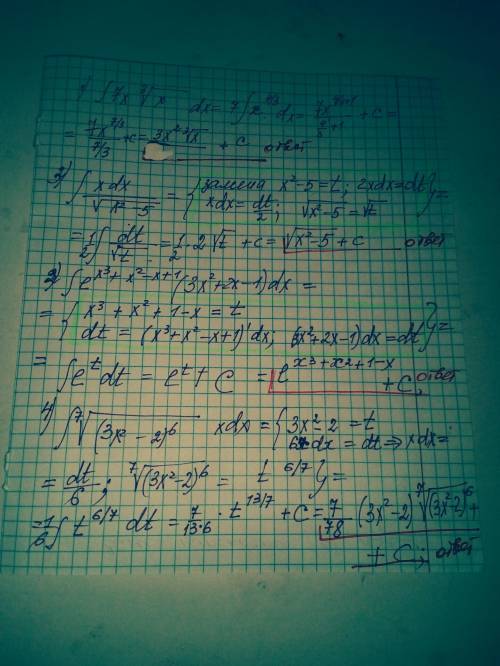 1) ∫ 7x ∛x dx = 7∫ x^{4/3} dx = 7x^{4/3+1} / (4/3+1) + c =
= 7x^{7/3} / 7/3 + c = 3x² ∛x + c ответ
2) ∫ xdx / √(x²-5) = { замена x²-5=t; 2xdx=dt
xdx = dt/2; √(x²-5) = √t } =
= 1/2 ∫ dt/√t = 1/2 · 2√t + c = √(x²-5) + c ответ
3) ∫ e^{x³+x²-x+1} (3x²+2x-1)dx =
= { x³+x²+1-x = t
dt = (x³+x²-x+1)'dx; (3x²+2x-1)dx = dt } =
= ∫ e^t dt = e^t + C = e^{x³+x²+1-x} + C; ответ
4) ∫ ⁷√(3x²-2)⁶ xdx = { 3x²-2 = t
6xdx = dt ⇒ xdx =
= dt/6; ⁷√(3x²-2)⁶ = t^{6/7} } =
= 1/6 ∫ t^{6/7} dt = 7/(13·6) · t^{13/7} + C = 7/78 (3x²-2) ⁷√(3x²-2)⁶ +
+ C; ответ